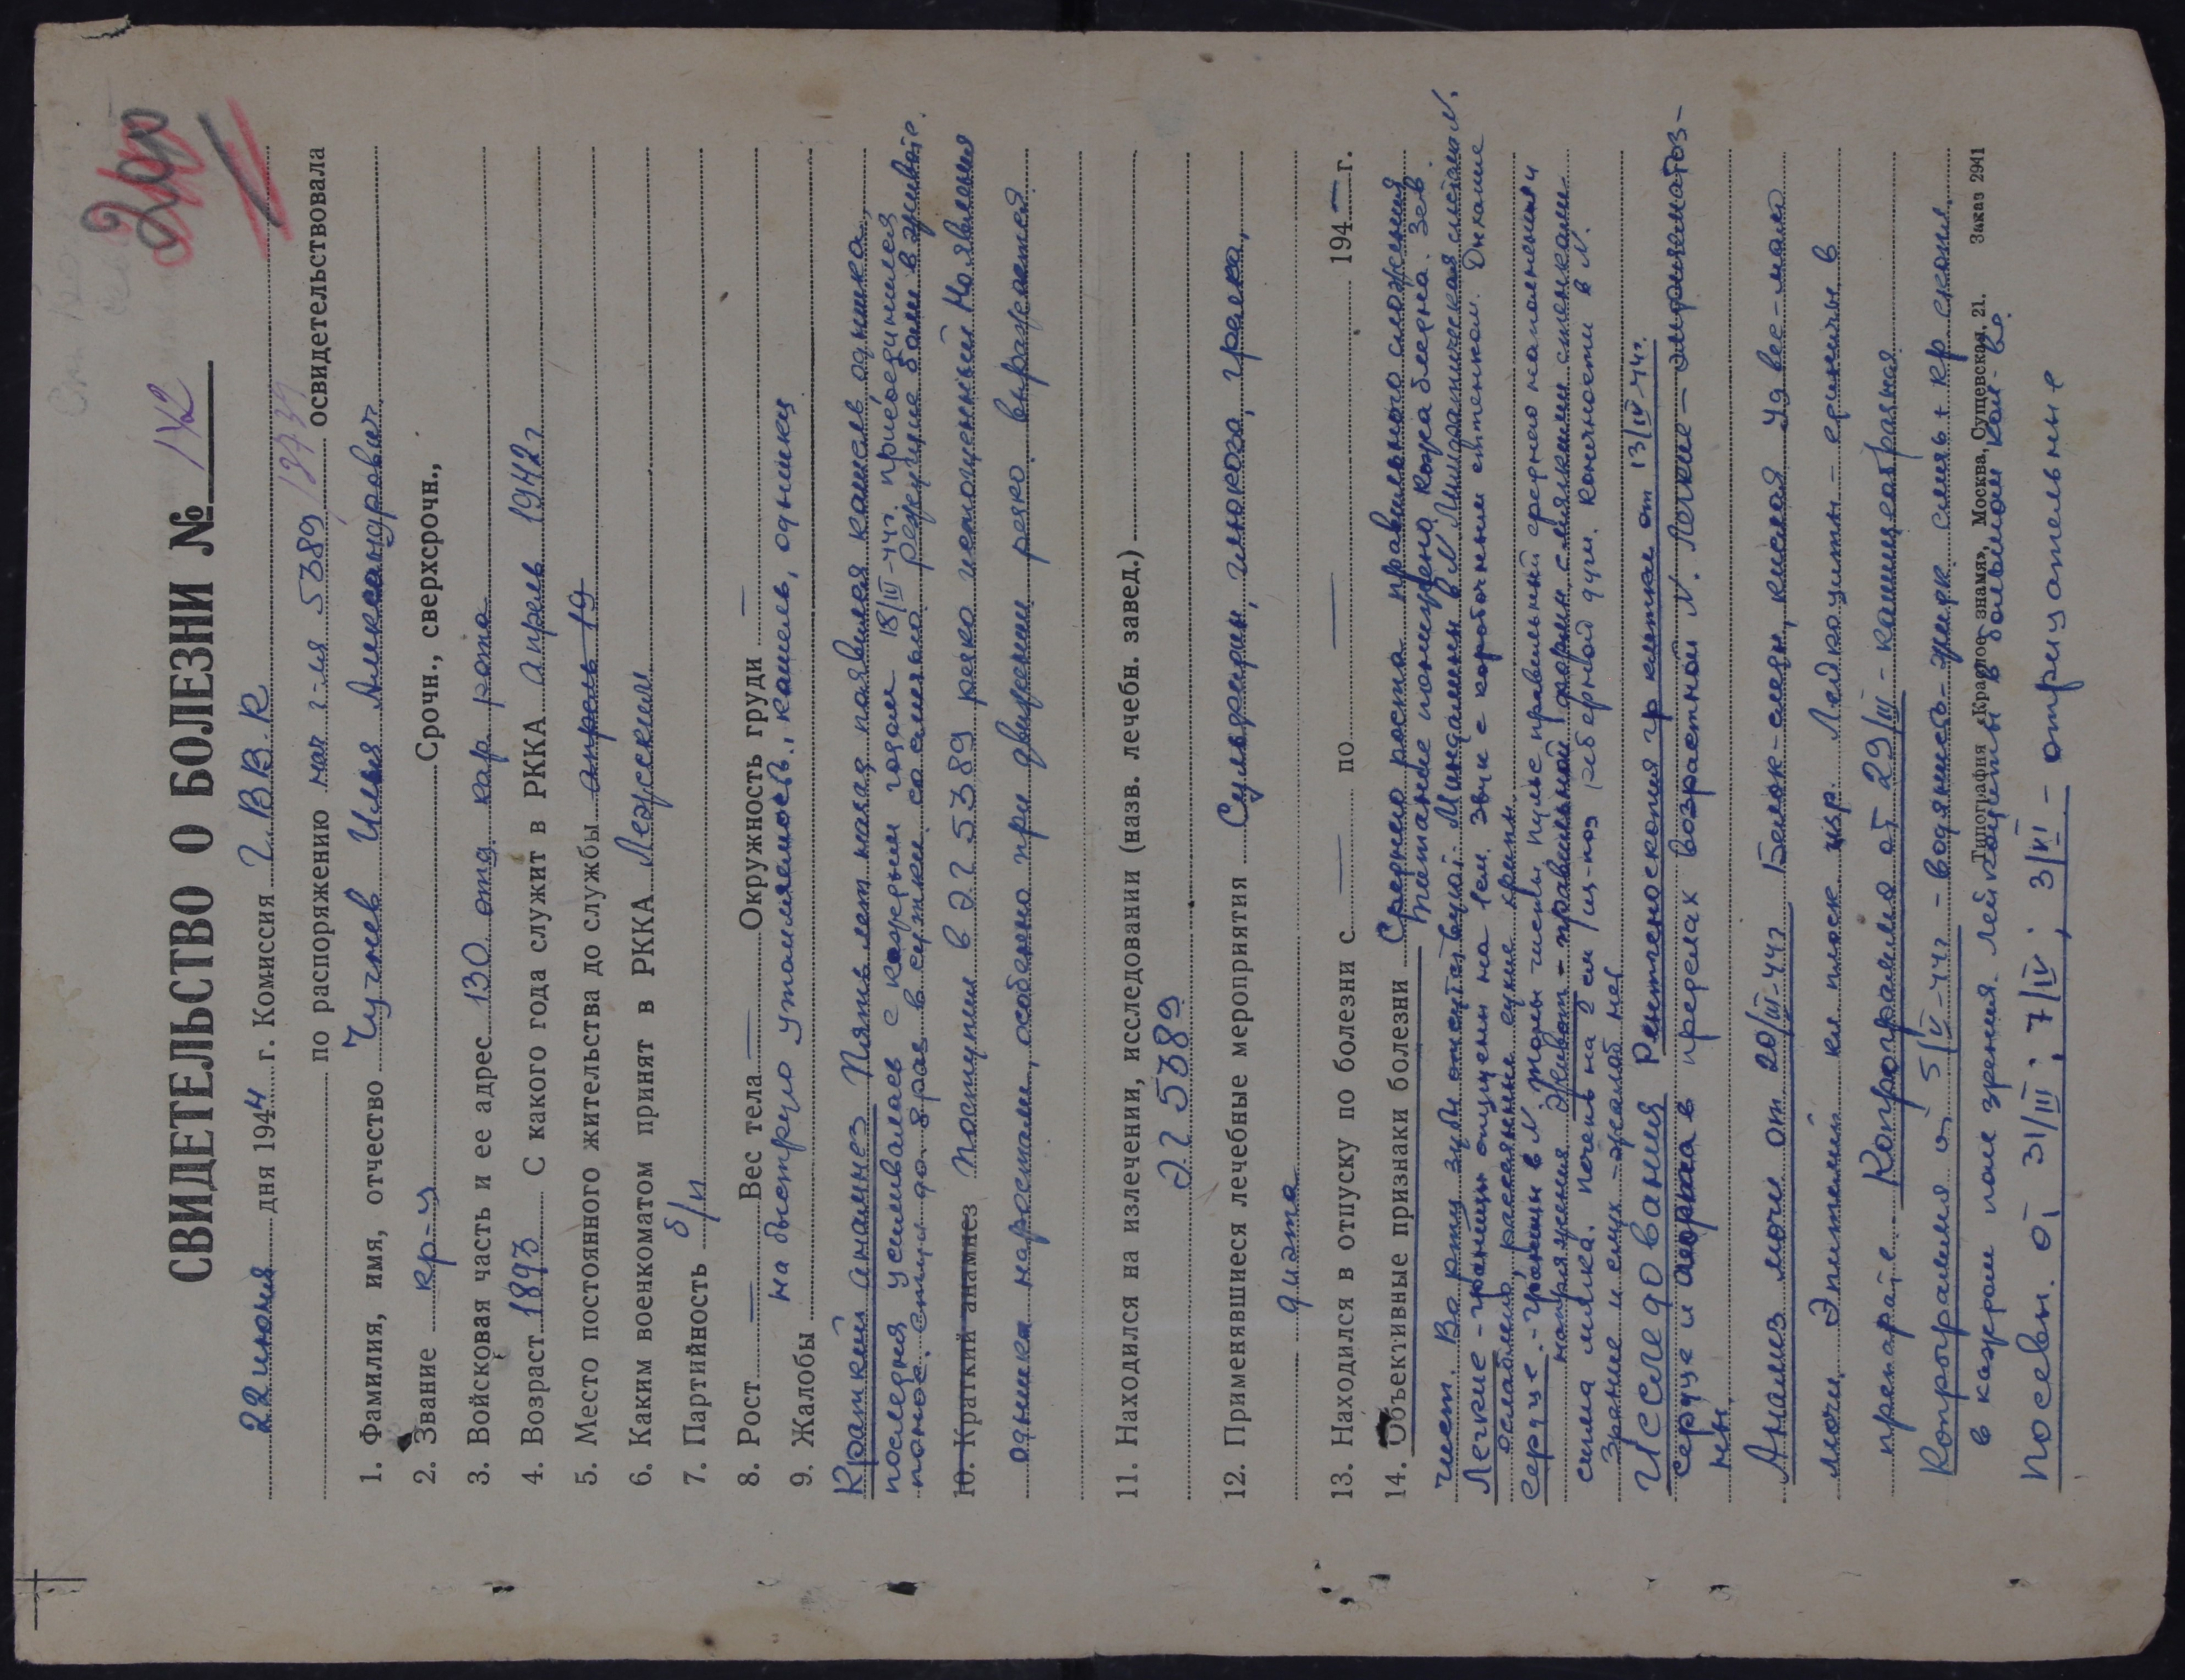 СВИДЕТЕЛЬСТВО О БОЛЕЗНИ № 142
22 июня дня 1944 г. Комиссия Г.В.В.К
по распоряжению нач г-ля 5389/2739 освидетельствовала
1. Фамилия, имя, отчество Чучнев Илья Александрович
2. Звание кр-ц Срочн., сверхсрочн.,
3. Войсковая часть и ее адрес 130 отд кар рота
4. Возраст 1893 С какого года служит в РККА апрель 1942 г
5. Место постоянного жительства до службы апрель 19
6. Каким военкоматом принят в РККА Лежским
7. Партийность б/п
8. Рост — Вес тела — Окружность груди —
на быструю утомляемость, кашель, одышку
9. Жалобы
Краткий анамнез Пять лет назад появился кашель одышка,
последняя усиливалась с каждым годом 18/III-44г. присоединился
понос, стул до 8 раз в сутки со слизью режущие боли в животе.
10. Краткий анамнез Поступил в ЭГ 5389 резко истощенный Но явления
одышки нарастали, особенно при движении резко выражается
11. Находился на излечении, исследовании (назв. лечебн. завед.)
ЭГ 5389
12. Применявшиеся лечебные мероприятия Сульфидин, глюкоза, грелка,
диэта
13. Находился в отпуску по болезни с — по — 194— г.
14. Объективные признаки болезни Среднего роста правильного сложения
Питание понижено, кожа бледна. Зев
чист. Во рту зубы отсутствуют. Миндалины в N Лимфатическая система N.
Легкие - границы опущены на 1см. звук с коробочным оттенком. Дыхание
ослаблено, рассеянные сухие хрипы.
Сердце - границы в N тоны чисты пульс правильный среднего наполнения и
напряжения Живот - правильной формы с мягкими стенками
слепая мягка. печень на 2 см из-под реберной дуги. Конечности в N.
Зрение и слух - жалоб нет
Исследования Рентгеноскопия гр клетки от 13/IV-44г.
сердце и аорта в пределах возрастной N. Легкие - эмфизематоз-
ны.
Анализ мочи от 20/III-44г Белок-следы, кислая уд вес - мало
мочи. Эпителий кл плоск изр. Лейкоциты - единичные в
препарате. Копрограмма от 29/III - кашицеобразная
Копрограмма от 5/IV-44г - водянисто-жидк. слизь + кр. скопл.
в каждом поле зрения. лейкоциты в большом кол-ве.
Типография «Красное знамя», Москва, Сущевская, 21. Заказ 2941
Посевы. от 31/III; 7/IV; 3/VI - отрицательные